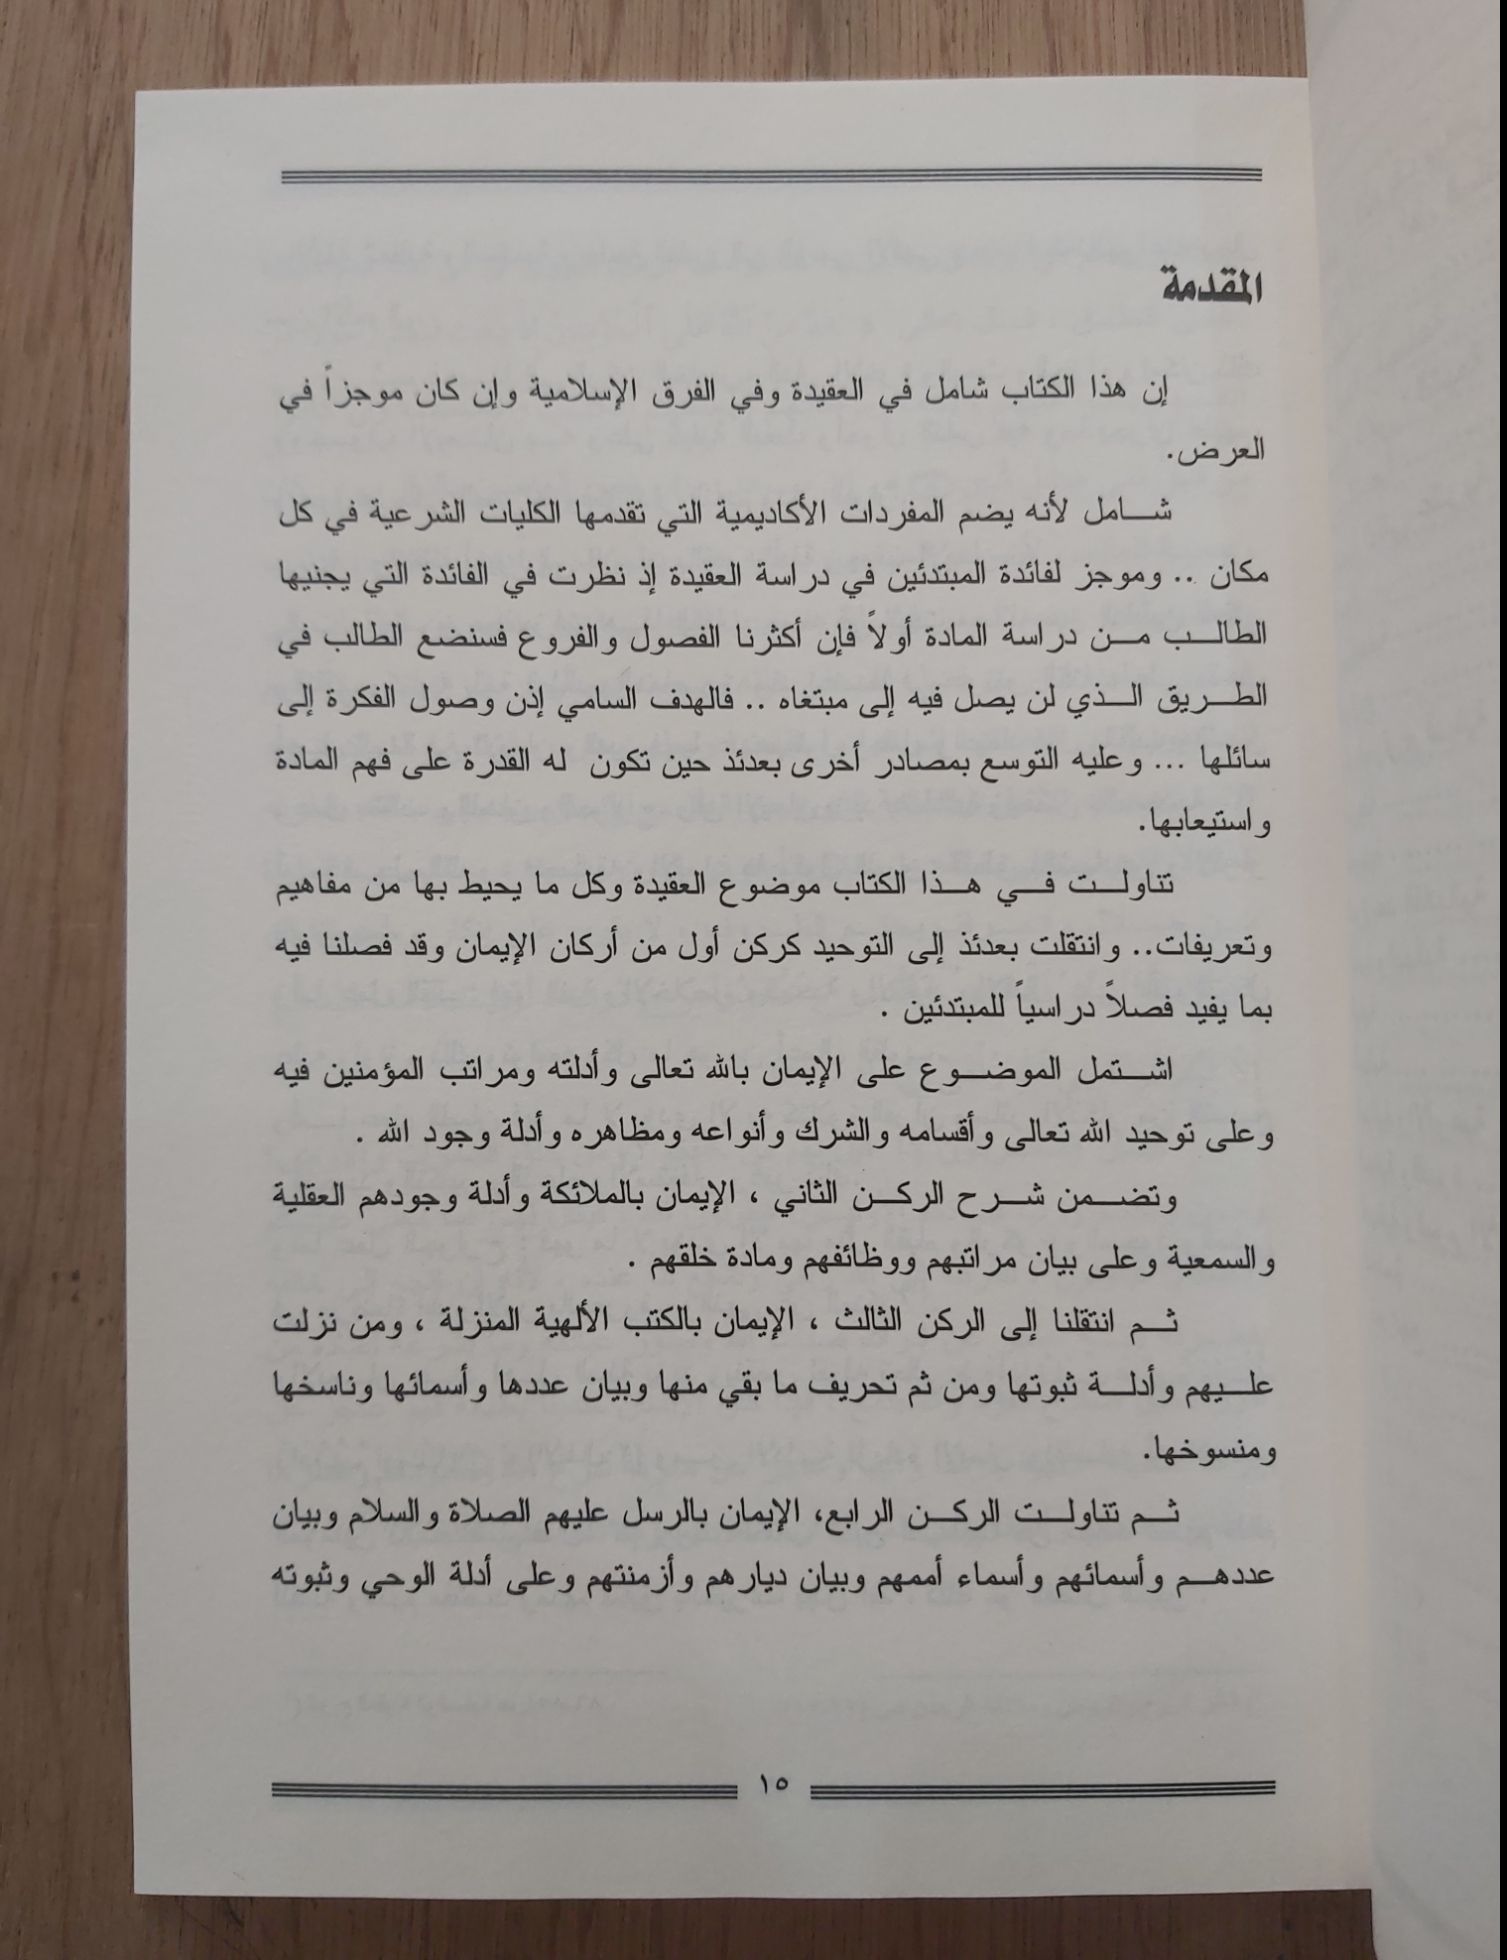 المقدمة
إن هذا الكتاب شامل في العقيدة وفي الفرق الإسلامية وإن كان موجزاً في
العرض.
شامل لأنه يضم المفردات الأكاديمية التي تقدمها الكليات الشرعية في كل
مكان .. وموجز لفائدة المبتدئين في دراسة العقيدة إذ نظرت في الفائدة التي يجنيها
الطالب من دراسة المادة أولاً فإن أكثرنا الفصول والفروع فسنضع الطالب في
الطريق الذي لن يصل فيه إلى مبتغاه .. فالهدف السامي إذن وصول الفكرة إلى
سائلها ... وعليه التوسع بمصادر أخرى بعدئذ حين تكون له القدرة على فهم المادة
واستيعابها.
تناولت في هذا الكتاب موضوع العقيدة وكل ما يحيط بها من مفاهيم
وتعريفات.. وانتقلت بعدئذ إلى التوحيد كركن أول من أركان الإيمان وقد فصلنا فيه
بما يفيد فصلاً دراسياً للمبتدئين .
اشتمل الموضوع على الإيمان بالله تعالى وأدلته ومراتب المؤمنين فيه
وعلى توحيد الله تعالى وأقسامه والشرك وأنواعه ومظاهره وأدلة وجود الله .
وتضمن شرح الركن الثاني ، الإيمان بالملائكة وأدلة وجودهم العقلية
والسمعية وعلى بيان مراتبهم ووظائفهم ومادة خلقهم .
ثم انتقلنا إلى الركن الثالث ، الإيمان بالكتب الألهية المنزلة ، ومن نزلت
عليهم وأدلة ثبوتها ومن ثم تحريف ما بقي منها وبيان عددها وأسمائها وناسخها
ومنسوخها.
ثم تناولت الركن الرابع، الإيمان بالرسل عليهم الصلاة والسلام وبيان
عددهم وأسمائهم وأسماء أممهم وبيان ديارهم وأزمنتهم وعلى أدلة الوحي وثبوته
١٥